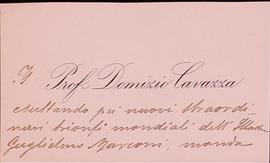 Il Prof. Domizio Cavazza
esultando pei nuovi straordi-
nari trionfi mondiali dell'Illustre
Guglielmo Marconi, manda